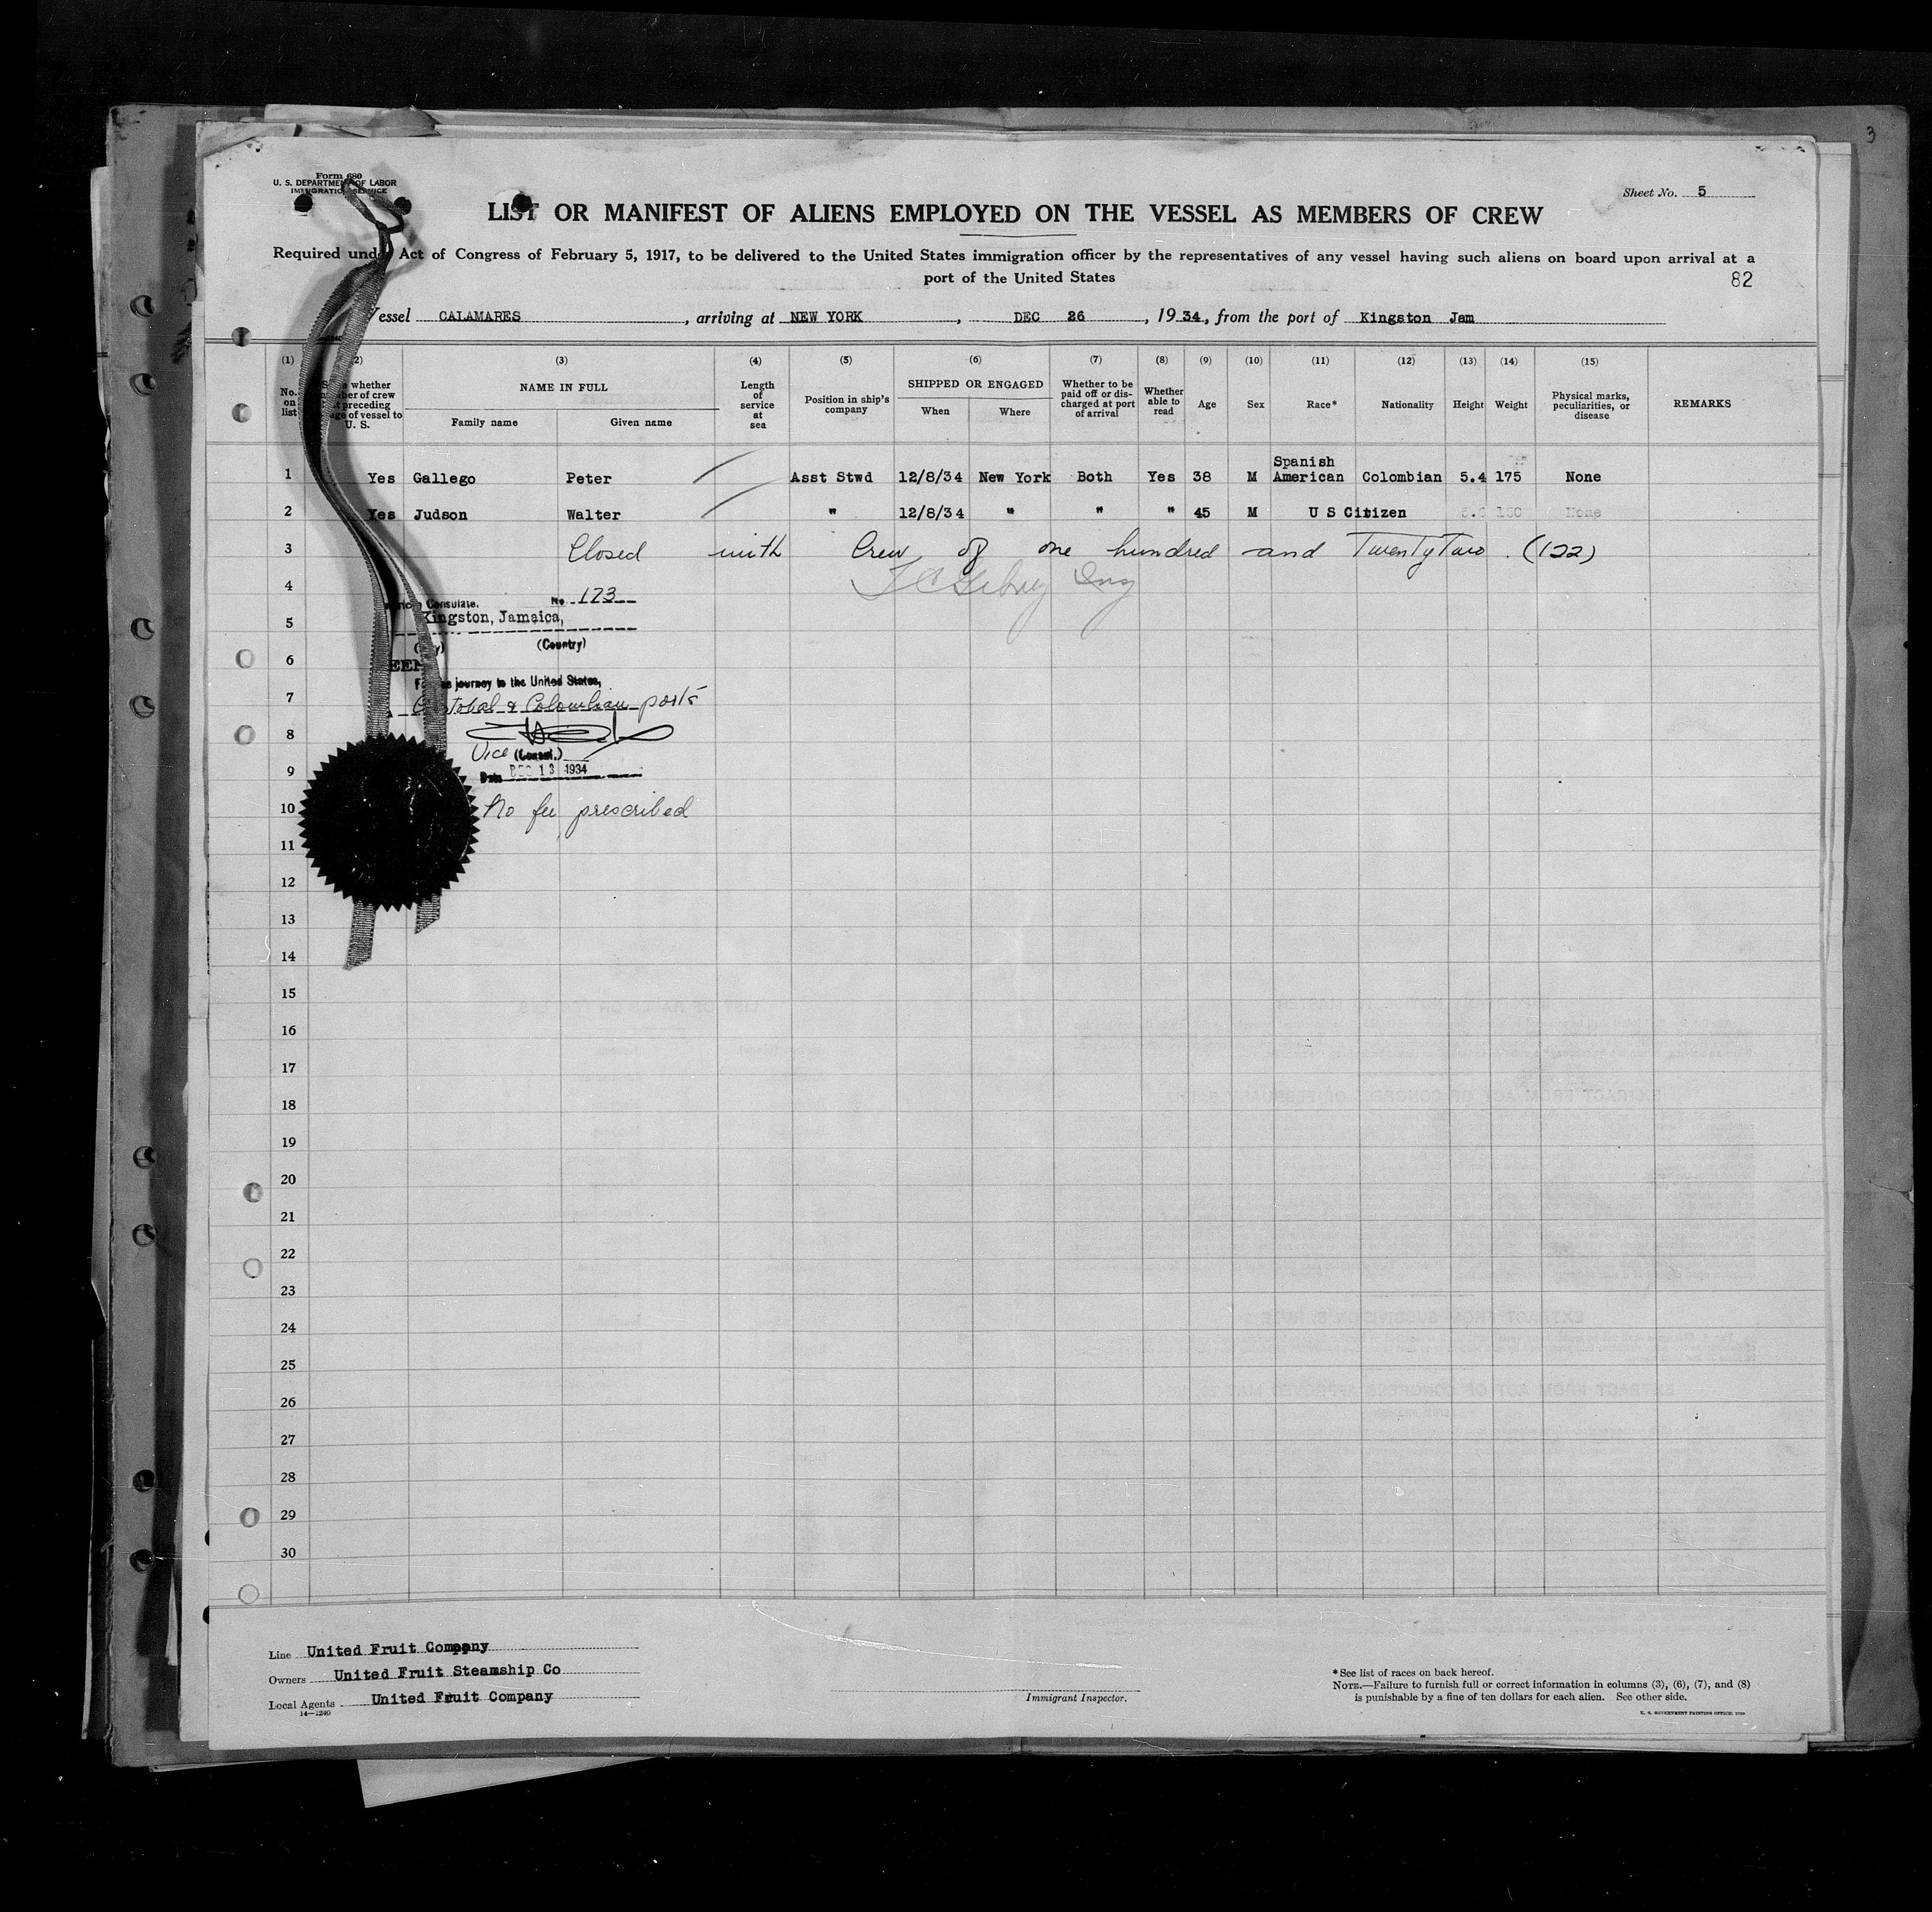 3
Form 680
U. S. DEPARTMENT OF LABOR
IMMIGRATION SERVICE
Sheet No. 5
LIST OR MANIFEST OF ALIENS EMPLOYED ON THE VESSEL AS MEMBERS OF CREW
Required under Act of Congress of February 5, 1917, to be delivered to the United States immigration officer by the representatives of any vessel having such aliens on board upon arrival at a
port of the United States
82
Vessel CALAMARES, arriving at NEW YORK, DEC 26, 1934, from the port of Kingston Jam
(1) (2) (3) (4) (5) (6) (7) (8) (9) (10) (11) (12) (13) (14) (15)
No. on list
whether
of crew
preceding
of vessel to
U. S.
NAME IN FULL
Family name Given name
Length of service at sea
Position in ship's company
SHIPPED OR ENGAGED
When Where
Whether to be paid off or discharged at port of arrival
Whether able to read
Age Sex Race* Nationality Height Weight
Physical marks, peculiarities, or disease
REMARKS
1 Yes Gallego Peter Asst Stwd 12/8/34 New York Both Yes 38 M Spanish American Colombian 5.4 175 None
2 Yes Judson Walter " 12/8/34 " " " 45 M U S Citizen None
3 Closed with Crew of one hundred and Twenty Two. (122)
4
Consulate. No. 173
5 Kingston, Jamaica,
(Country)
6
journey to the United States,
7 & Colombian ports
8
Vice (Consul.)
9 Date DEC 13 1934
10 No fee prescribed
11
12
13
14
15
16
17
18
19
20
21
22
23
24
25
26
27
28
29
30
Line United Fruit Company
Owners United Fruit Steamship Co
Local Agents United Fruit Company
14—1240
Immigrant Inspector.
*See list of races on back hereof.
NOTE.—Failure to furnish full or correct information in columns (3), (6), (7), and (8)
is punishable by a fine of ten dollars for each alien. See other side.